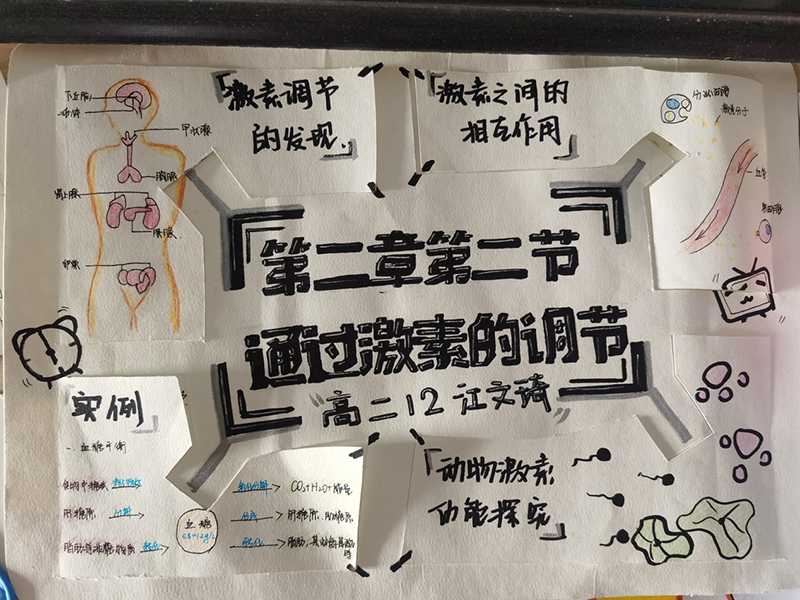 下丘脑
垂体
甲状腺
胸腺
肾上腺
胰腺
卵巢
「激素调节
的发现」
「激素之间的
相互作用」
内分泌细胞
激素分子
血管
靶细胞
第二章第二节
通过激素的调节
"高二12 江文琦"
「实例」
一、血糖平衡
食物中糖类 消化吸收
肝糖原 分解
脂肪等非糖物质 转化
血糖
0.8-1.2g/L
氧化分解 CO₂+H₂O+能量
合成 肝糖原、肌糖原
转化
「动物激素
功能探究」